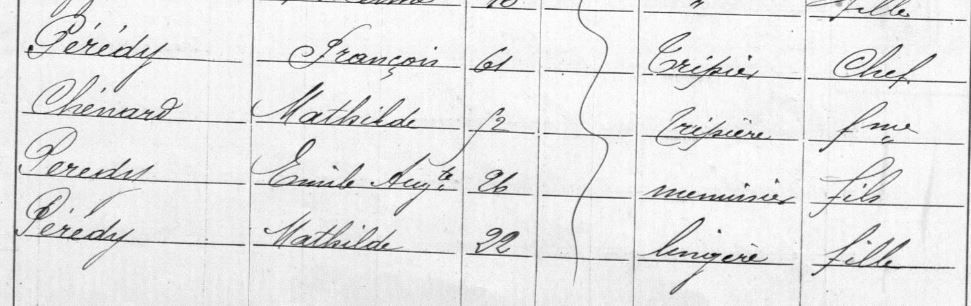 10 " fille
Pérédy François 61 Tripier Chef
Chénard Mathilde 52 Tripière fme
Peredy Emile Augte 26 menuisier fils
Pérédy Mathilde 22 lingère fille